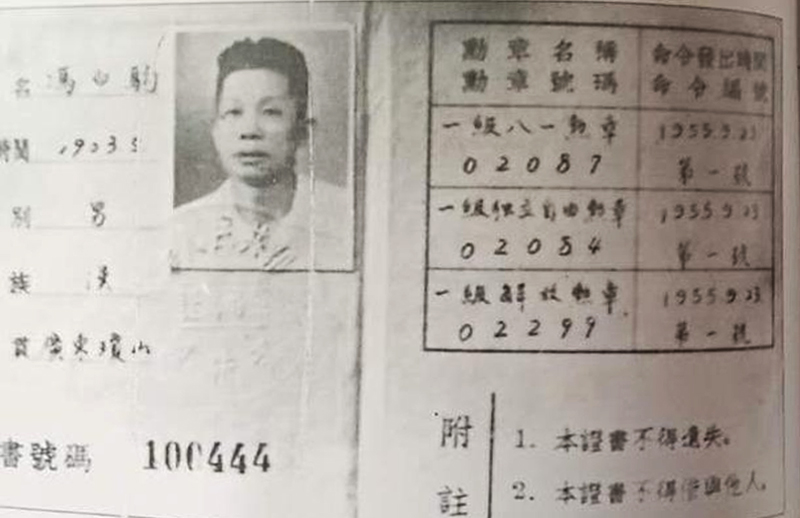 名 馮白駒
時間 1903.5
別 男
族 漢
貫 廣東瓊山
書號碼 100444
勳章名稱
勳章號碼
命令發出時間
命令編號
一級八一勳章
02087
1955.9.23
第一號
一級独立自由勳章
02084
1955.9.23
第一號
一級解放勳章
02299
1955.9.23
第一號
附註
1. 本證書不得遺失。
2. 本證書不得借與他人。